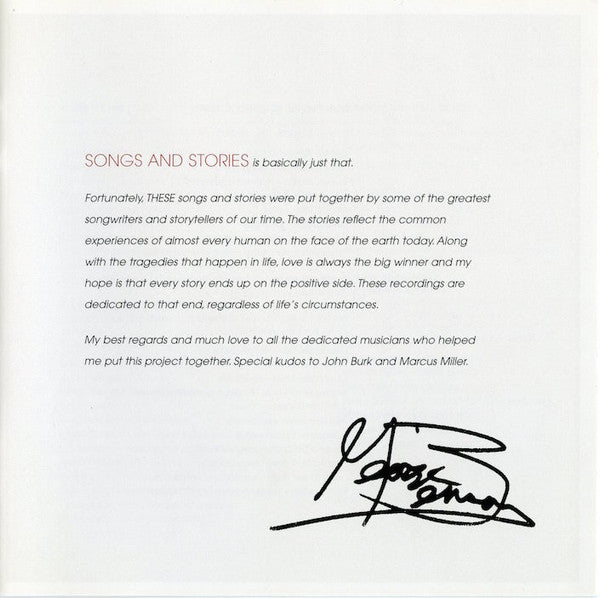 SONGS AND STORIES is basically just that.
Fortunately, THESE songs and stories were put together by some of the greatest
songwriters and storytellers of our time. The stories reflect the common
experiences of almost every human on the face of the earth today. Along
with the tragedies that happen in life, love is always the big winner and my
hope is that every story ends up on the positive side. These recordings are
dedicated to that end, regardless of life's circumstances.
My best regards and much love to all the dedicated musicians who helped
me put this project together. Special kudos to John Burk and Marcus Miller.
George Benson